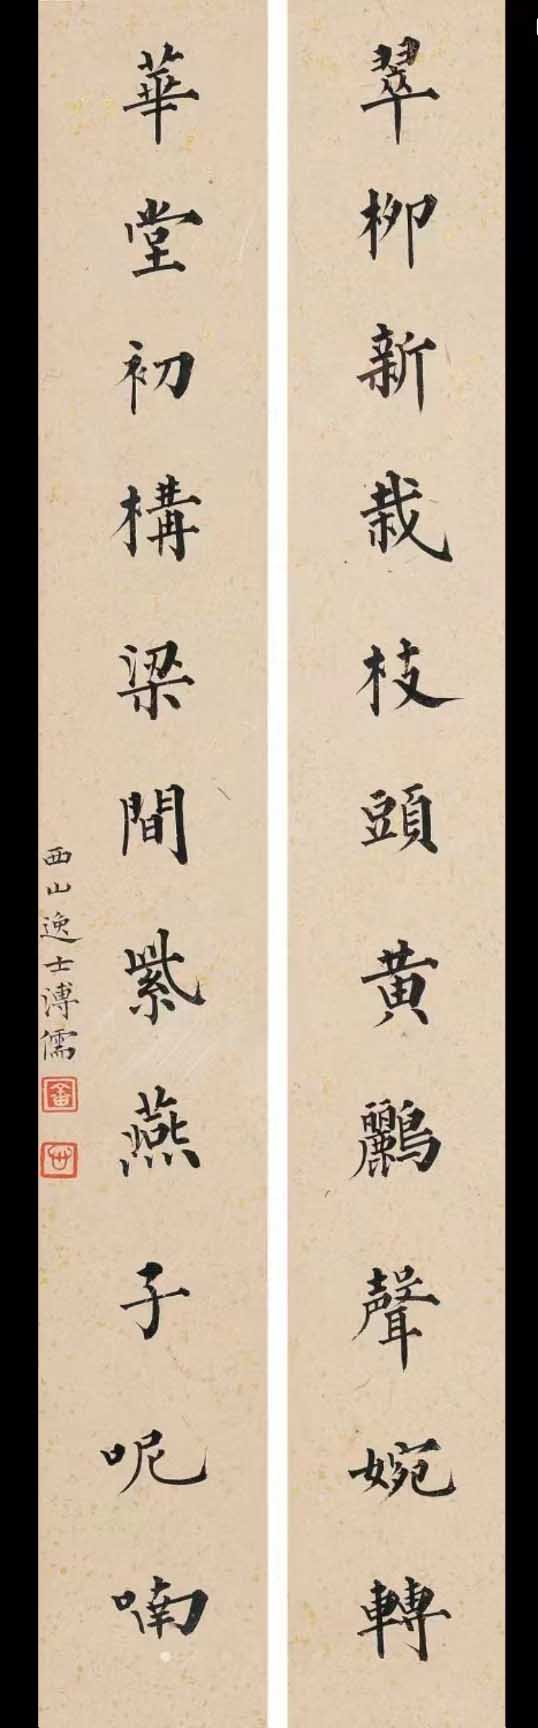 翠柳新栽枝頭黃鸝聲婉轉
華堂初構梁間紫燕子呢喃
西山逸士溥儒